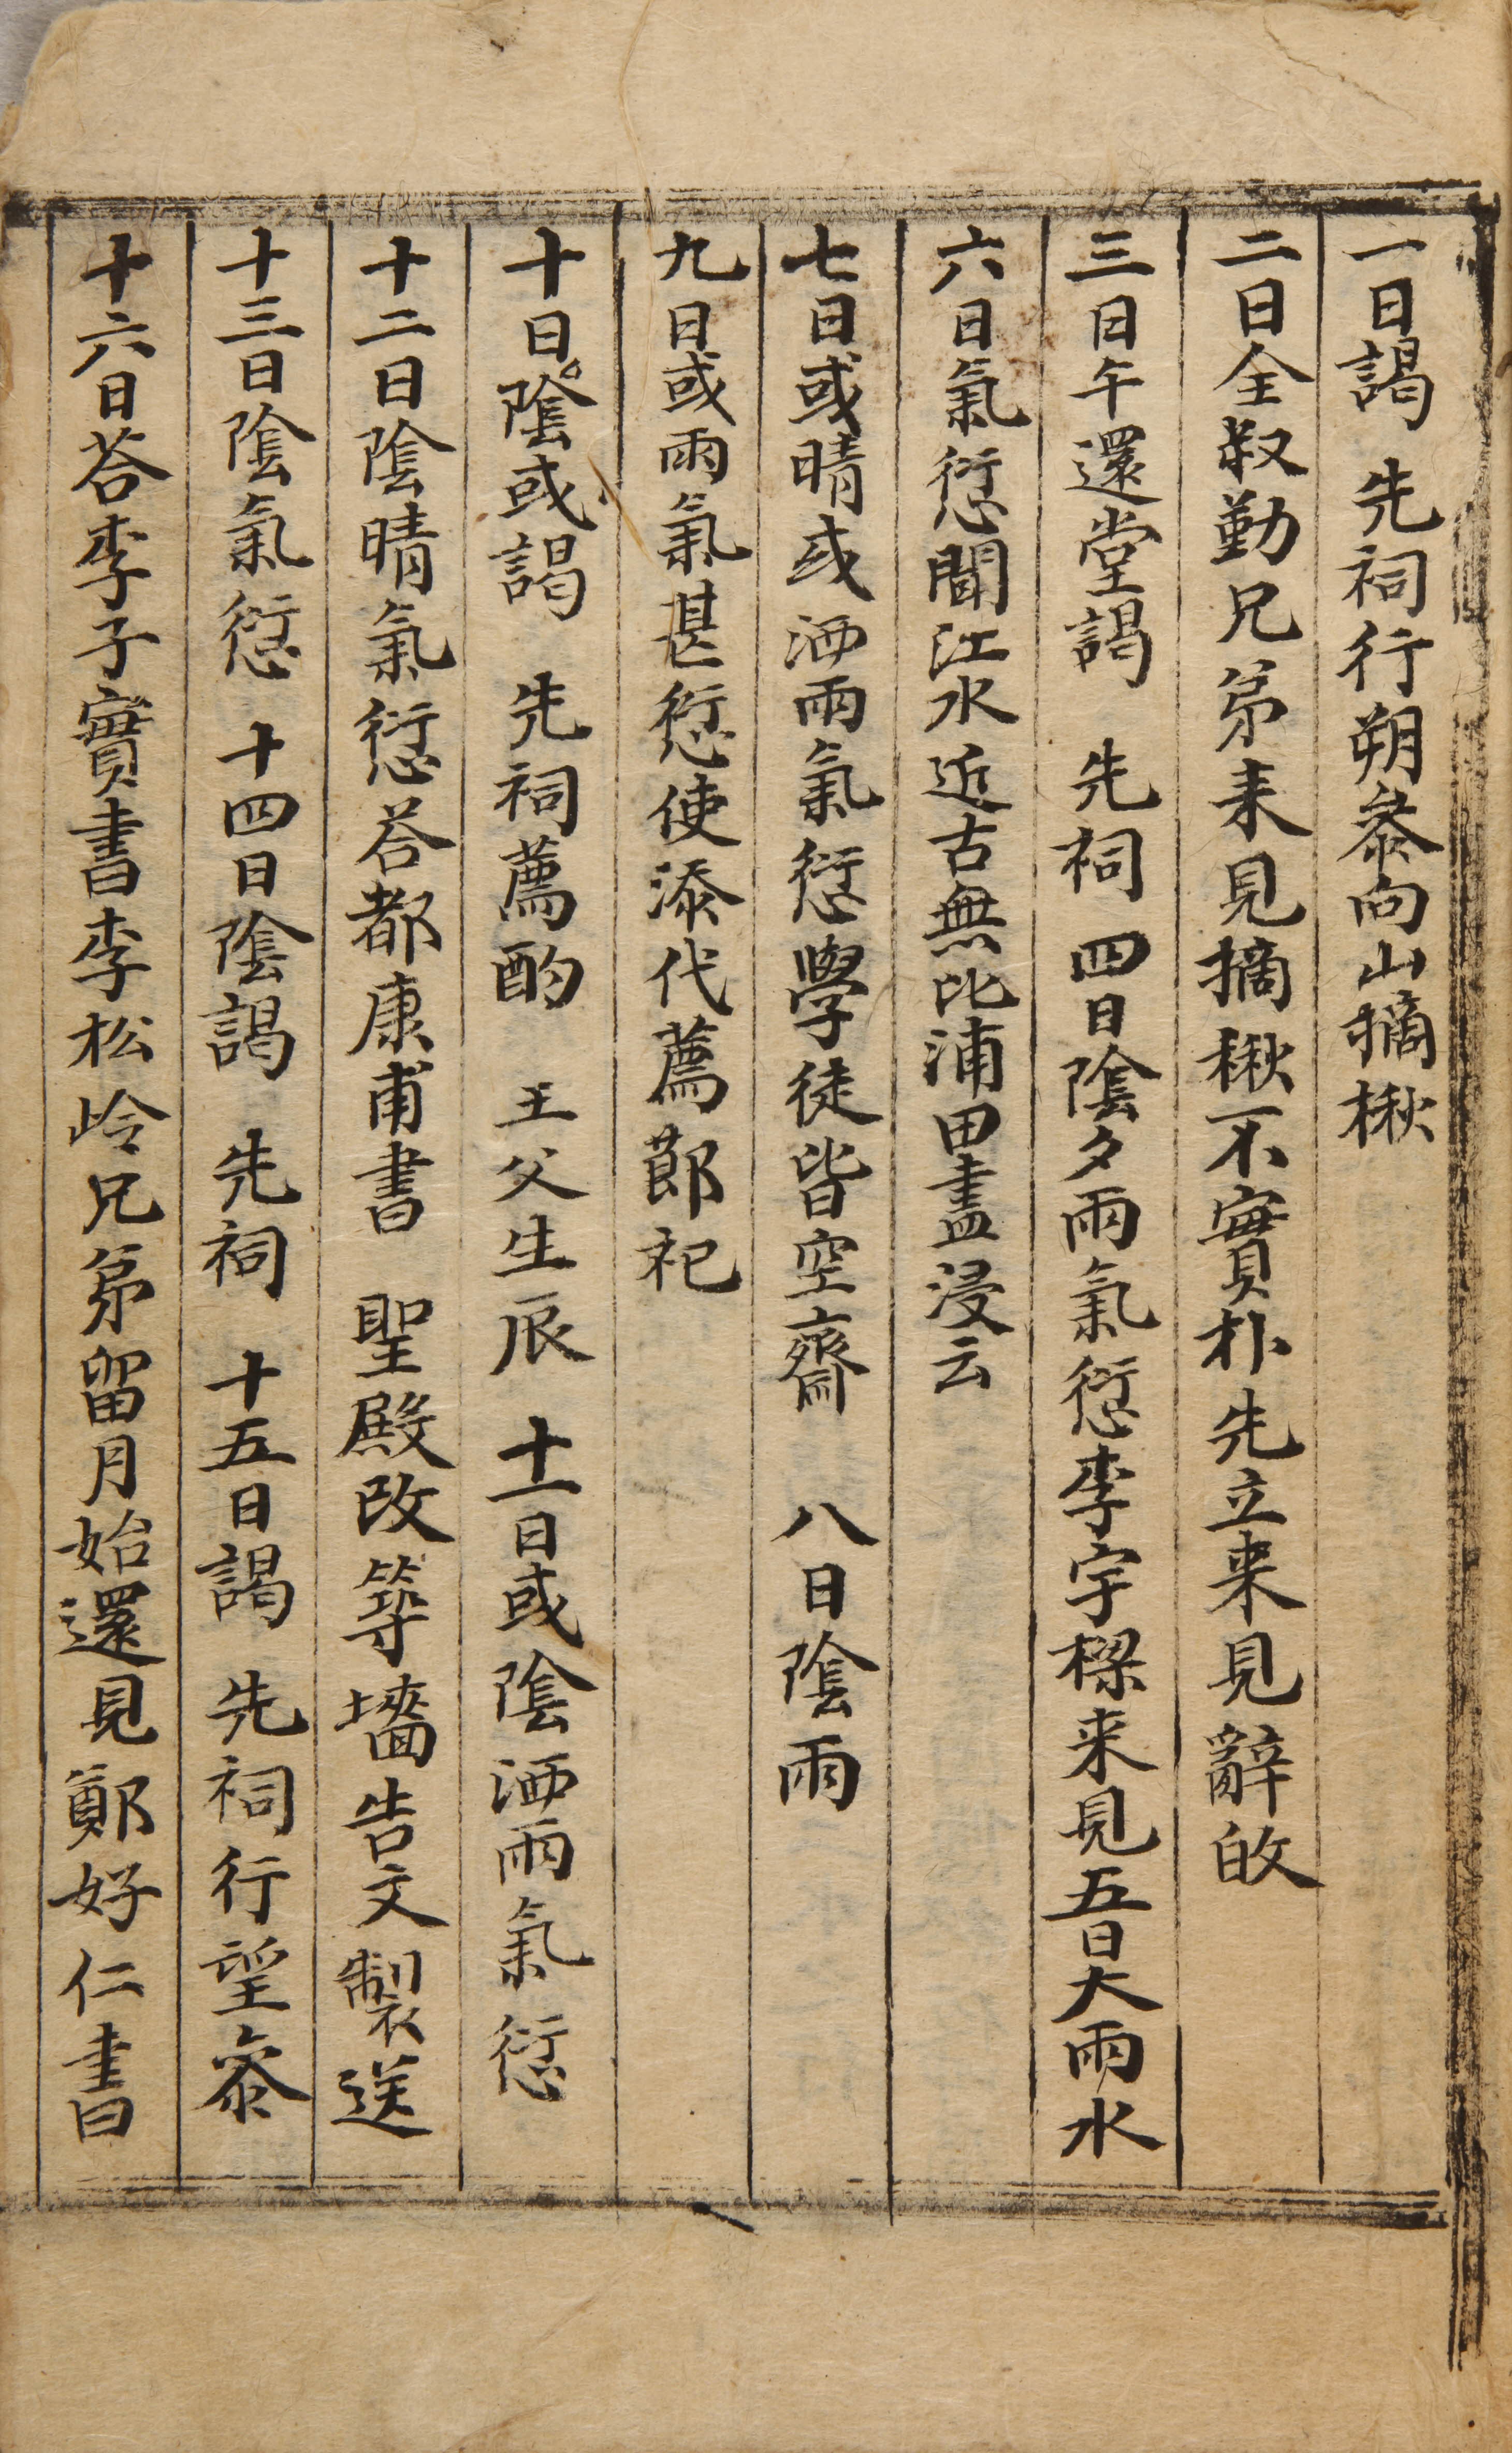 一日謁 先祠行朔叅向山摘楸
二日全叔勤兄弟来見摘楸不實朴先立来見辭故
三日午還堂謁 先祠 四日陰夕雨氣愆李宇樑来見五日大雨水
六日氣愆聞江水近古無比浦田盡浸云
七日或晴或洒雨氣愆學徒皆空齋 八日陰雨
九日或雨氣甚愆使添代薦節祀
十日陰或謁 先祠薦酌 王父生辰 十一日或陰洒雨氣愆
十二日陰晴氣愆荅都康甫書 聖殿改築墻告文製送
十三日陰氣愆 十四日陰謁 先祠 十五日謁 先祠行望叅
十六日荅李子實書李松岭兄弟留月始還見鄭好仁書